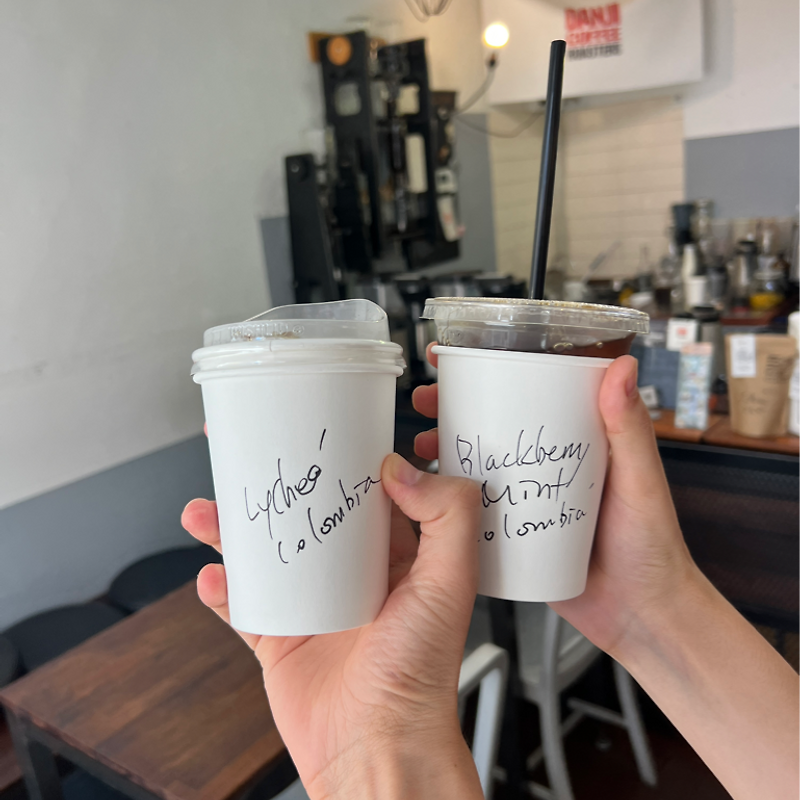 DANJI
COFFEE
ROASTERS
Lychee
Colombia
Blackberry
Mint
Colombia